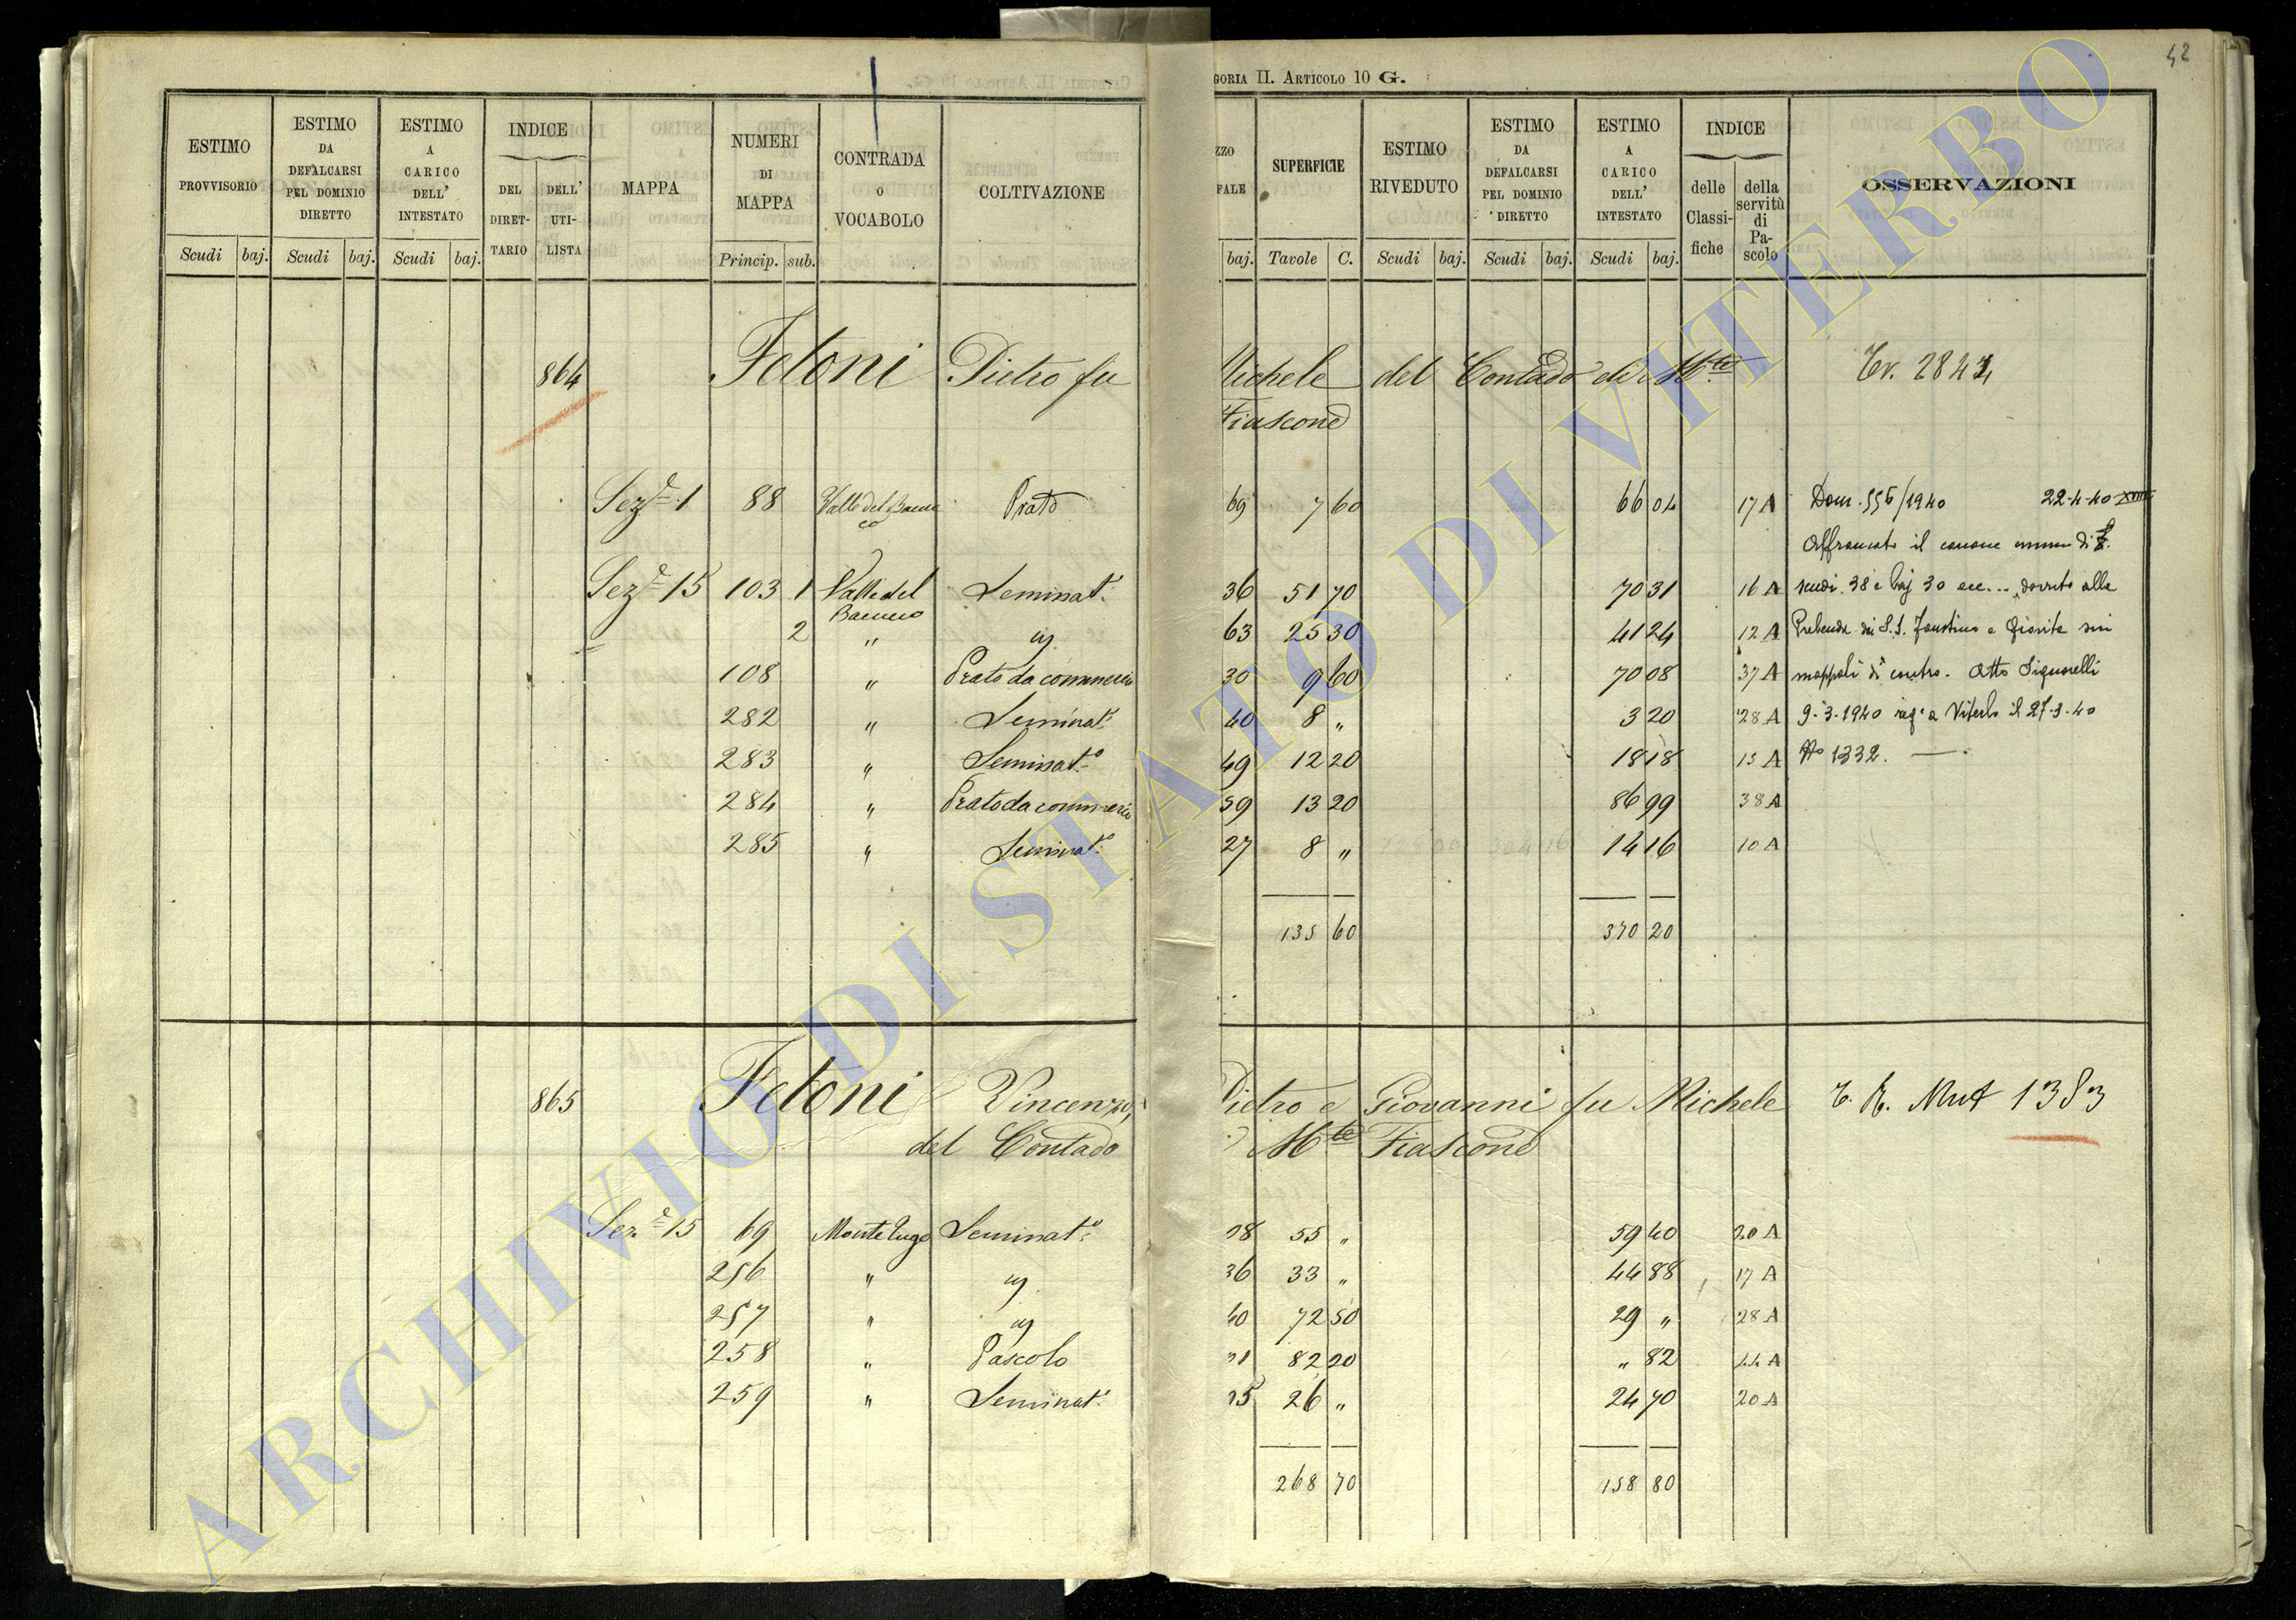 42
GORIA II. ARTICOLO 10 G.
ESTIMO PROVVISORIO Scudi baj.
ESTIMO DA DEFALCARSI PEL DOMINIO DIRETTO Scudi baj.
ESTIMO A CARICO DELL' INTESTATO Scudi baj.
INDICE DEL DIRETTARIO DELL' UTILISTA
MAPPA
NUMERI DI MAPPA Princip. sub.
CONTRADA O VOCABOLO
COLTIVAZIONE
ZZO FALE baj.
SUPERFICIE Tavole C.
ESTIMO RIVEDUTO Scudi baj.
ESTIMO DA DEFALCARSI PEL DOMINIO DIRETTO Scudi baj.
ESTIMO A CARICO DELL' INTESTATO Scudi baj.
INDICE delle Classifiche della servitù di Pascolo
OSSERVAZIONI
864 Fetoni Pietro fu Michele del Contado di Mte
Fiascone
Seze 1 88 Prato 69 7 60 66 04 17 A
Seze 15 103 1 Valle del Seminato 36 51 70 70 31 16 A
2 " 63 25 30 41 24 12 A
108 " Prato da commercio 30 9 60 70 08 37 A
282 " Seminato 40 8 " 3 20 28 A
283 " Seminato 49 12 20 18 18 13 A
284 " Prato da commercio 59 13 20 86 99 38 A
285 " Seminato 27 8 " 14 16 10 A
135 60 370 20
Dom. 556/1940 22-4-40 XVIII
Affrancato il canone annuo di
scudi 38 e baj 30 ecc... dovuto alla
Prebenda dei S.S. Faustino e Giovita sui
mappali di contro. Atto Signorelli
9-3-1940 reg. a Viterbo il 27-3-40
No 1332.
865 Fetoni Vincenzo, Pietro e Giovanni fu Michele
del Contado di Mte Fiascone
1383
Seze 15 69 Seminato 38 55 " 59 40 20 A
256 " 36 33 " 44 88 17 A
257 " 40 72 50 29 " 28 A
258 " Pascolo 82 20 " 82
259 " Seminato 26 " 24 70 20 A
268 70 158 80
ARCHIVIO DI STATO DI VITERBO